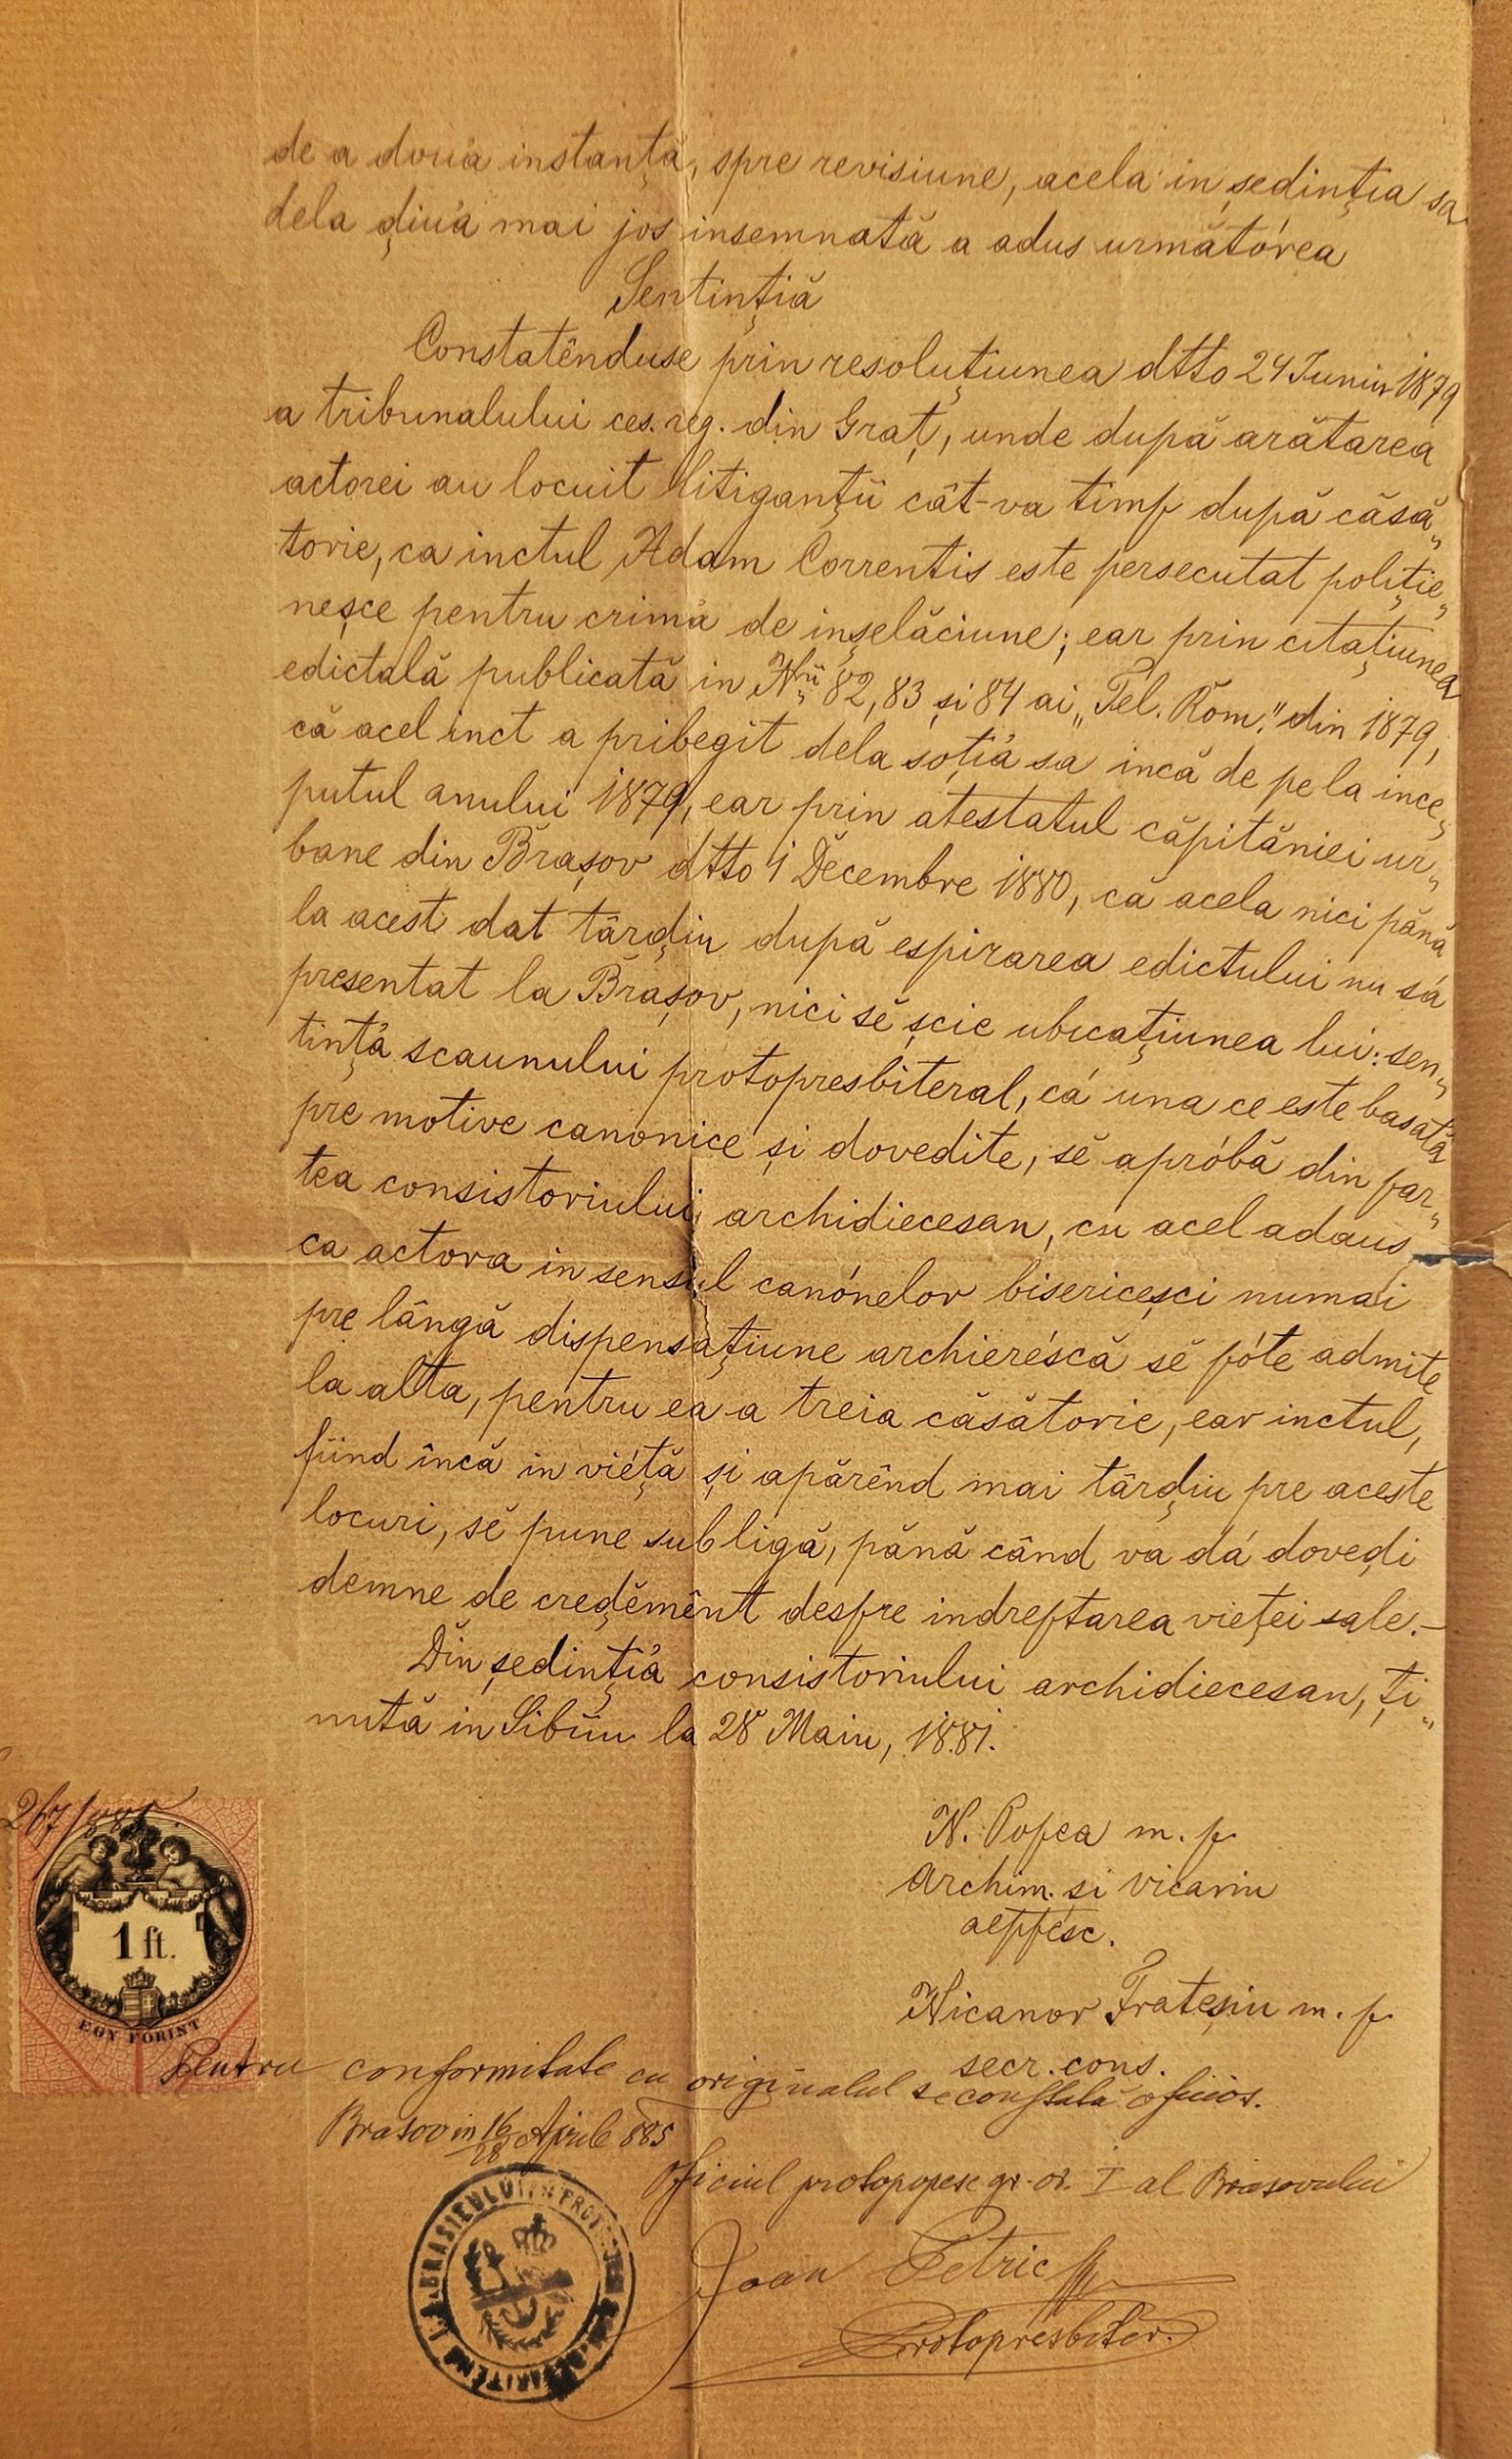 de a doua instanța, spre revisiune, acela in ședinția sa
dela ḑiua mai jos insemnată a adus următórea
Sentinţiă
Constatênduse prin resoluţiunea dtto 24 Juniu 1879
a tribunalului ces. reg. din Graţ, unde după arătarea
actorei au locuit litiganţii cât-va timp după căsă„
torie, ca inctul Adam Correntis este persecutat poliţie„
neşce pentru crimă de inşelăciune; ear prin citaţiunea
edictală publicată in Nrii 82, 83 şi 84 ai „Tel. Rom." din 1879,
că acel inct a pribegit dela soţiă sa incă de pe la ince„
putul anului 1879, ear prin atestatul căpităniei ur„
bane din Braşov dtto 1 Decembre 1880, că acela nici pănă
la acest dat târḑiu după espirarea edictului nu să
presentat la Braşov, nici sĕ şcie ubicaţiunea lui: sen„
tinţă scaunului protopresbiteral, că una ce este basată
pre motive canonice şi dovedite, sĕ apróbă din par„
tea consistoriului archidiecesan, cu acel adaus
ca actora in sensul canónelor bisericeşci numai
pre lângă dispensaţiune archieréscă sĕ póte admite
la alta, pentru ea a treia căsătorie, ear inctul,
fiind încă in viéţă şi apărênd mai târḑiu pre aceste
locuri, sĕ pune sub ligă, pănă când va dá doveḑi
demne de creḑĕmênt despre indreptarea vieţei sale.–
Din şedinţiă consistoriului archidiecesan, ţi„
nută in Sibiiu la 28 Maiu, 1881.
N. Popea m. p.
Archim. si vicariu
aeppésc.
Nicanor Frateşiu m. p.
secr. cons.
267/885.
1 ft.
EGY FORINT
Pentru conformitate cu originalul se constată oficios.
Brasov in 16/28 Aprile 885
Oficiul protopopesc gr. or. I al Brasovului
Joan Petric
Protopresbiter.